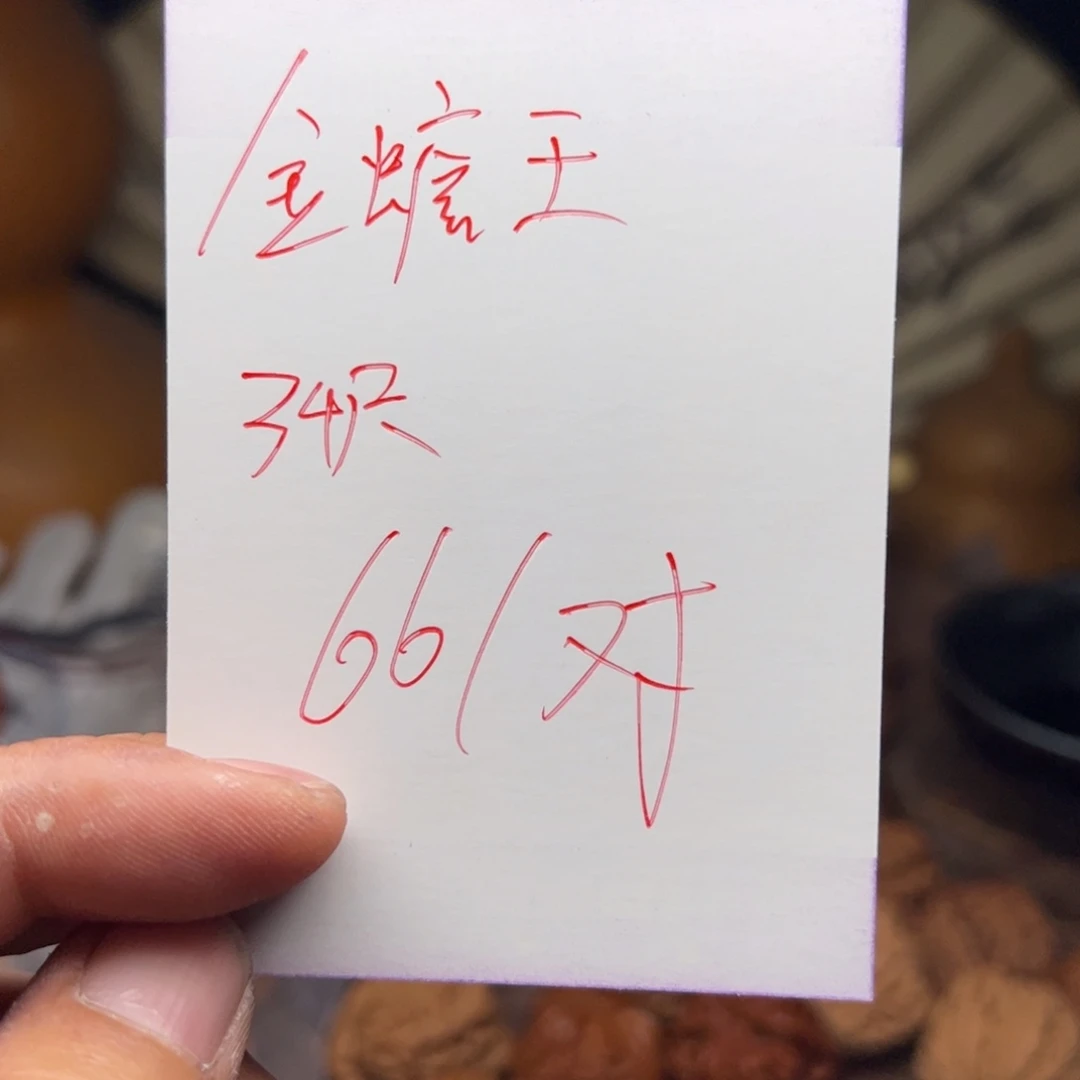 金蟾王
34只
66/对